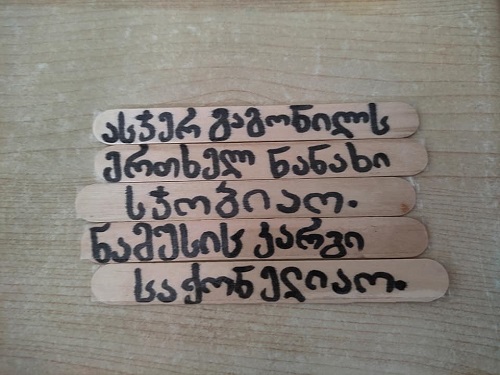 ასჯერ გაგონილს
ერთხელ ნანახი
სჯობიაო.
ნამუსის კარგი
საქონელიაო.